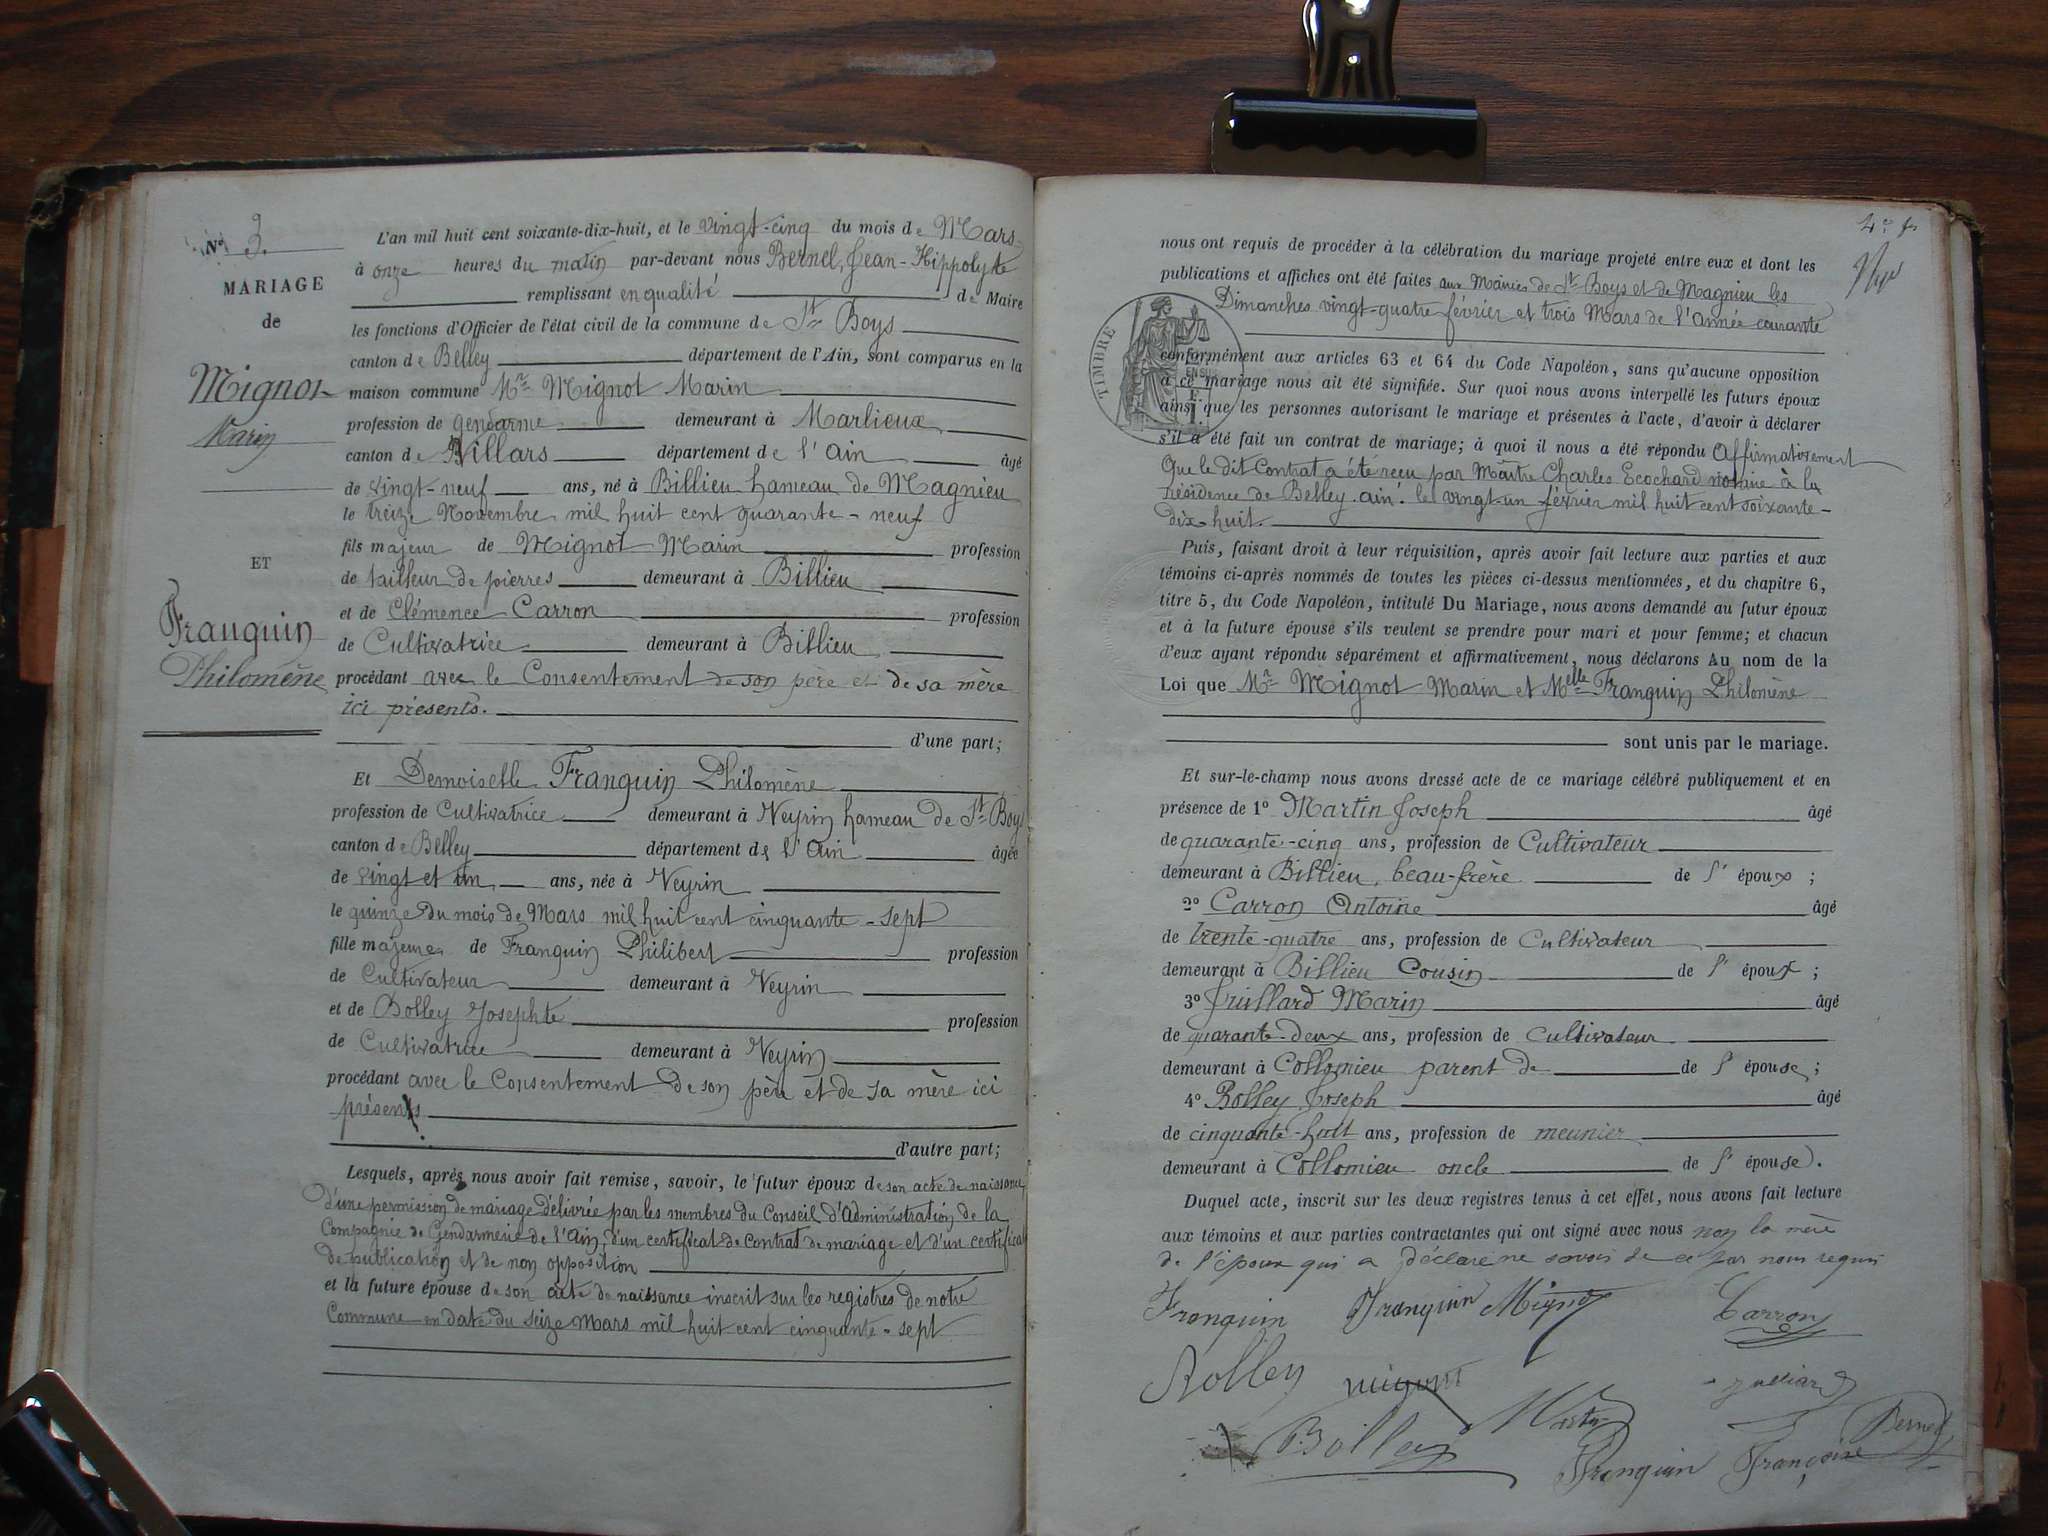 N° 3.
MARIAGE
de
Mignot
Marin
ET
Franquin
Philomène
L'an mil huit cent soixante-dix-huit, et le vingt-cinq du mois de Mars
à onze heures du matin par-devant nous Bernel, Jean-Hippolyte
remplissant en qualité de Maire
les fonctions d'Officier de l'état civil de la commune de St Boys
canton de Belley département de l'Ain, sont comparus en la
maison commune Mr Mignot Marin
profession de gendarme demeurant à Marlieux
canton de Villars département de l'ain âgé
de vingt-neuf ans, né à Billieu hameau de Magnieu
le treize Novembre mil huit cent quarante-neuf
fils majeur de Mignot Marin profession
de tailleur de pierres demeurant à Billieu
et de Clémence Carron profession
de Cultivatrice demeurant à Billieu
procédant avec le Consentement de son père et de sa mère
ici présents.
d'une part;
Et Demoiselle Franquin Philomène
profession de Cultivatrice demeurant à Neyrin hameau de St Boys
canton de Belley département de l'ain âgée
de vingt et un ans, née à Neyrin
le quinze du mois de Mars mil huit cent cinquante-sept
fille majeure de Franquin Philibert profession
de Cultivateur demeurant à Neyrin
et de Bolley Josephte profession
de Cultivatrice demeurant à Neyrin
procédant avec le Consentement de son père et de sa mère ici
présents.
d'autre part;
Lesquels, après nous avoir fait remise, savoir, le futur époux de son acte de naissance,
d'une permission de mariage délivrée par les membres du Conseil d'Administration de la
Compagnie de Gendarmerie de l'Ain, d'un certificat de contrat de mariage et d'un certificat
de publication et de non opposition
et la future épouse de son acte de naissance inscrit sur les registres de notre
Commune en date du seize Mars mil huit cent cinquante-sept
4e f
nous ont requis de procéder à la célébration du mariage projeté entre eux et dont les
publications et affiches ont été faites aux Mairies de St Boys et de Magnieu les
Dimanches vingt-quatre février et trois Mars de l'année courante
TIMBRE
EN SUS
conformément aux articles 63 et 64 du Code Napoléon, sans qu'aucune opposition
à ce mariage nous ait été signifiée. Sur quoi nous avons interpellé les futurs époux
ainsi que les personnes autorisant le mariage et présentes à l'acte, d'avoir à déclarer
s'il a été fait un contrat de mariage; à quoi il nous a été répondu Affirmativement
Que le dit Contrat a été reçu par Maître Charles Ecochard notaire à la
résidence de Belley. ain. le vingt-un février mil huit cent soixante-
dix-huit.
Puis, faisant droit à leur réquisition, après avoir fait lecture aux parties et aux
témoins ci-après nommés de toutes les pièces ci-dessus mentionnées, et du chapitre 6,
titre 5, du Code Napoléon, intitulé Du Mariage, nous avons demandé au futur époux
et à la future épouse s'ils veulent se prendre pour mari et pour femme; et chacun
d'eux ayant répondu séparément et affirmativement, nous déclarons Au nom de la
Loi que Mr Mignot Marin et Melle Franquin Philomène
sont unis par le mariage.
Et sur-le-champ nous avons dressé acte de ce mariage célébré publiquement et en
présence de 1° Martin Joseph âgé
de quarante-cinq ans, profession de Cultivateur
demeurant à Billieu, beau-frère de l'époux;
2° Carron Antoine âgé
de trente-quatre ans, profession de Cultivateur
demeurant à Billieu Cousin de l'époux;
3° Juillard Marin âgé
de quarante-deux ans, profession de cultivateur
demeurant à Collomieu parent de de l'épouse;
4° Bolley Joseph âgé
de cinquante-huit ans, profession de meunier
demeurant à Collomieu oncle de l'épouse.
Duquel acte, inscrit sur les deux registres tenus à cet effet, nous avons fait lecture
aux témoins et aux parties contractantes qui ont signé avec nous non la mère
de l'époux qui a déclaré ne savoir de ce par nous requis
Franquin Franquin Mignot Carron
Bolley mignot Juillard
Bolley Martin Bernel
Franquin Françoise